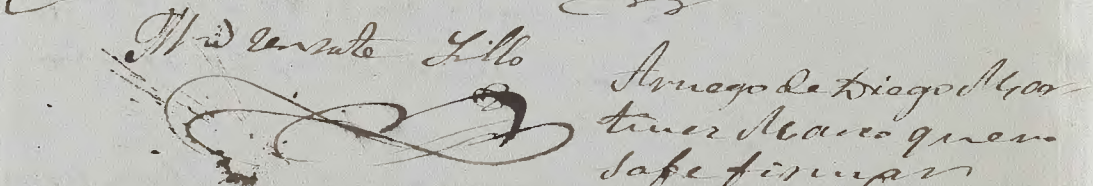 Lillo
Arruego de Diego Mar
tinez Marco que no
sabe firmar